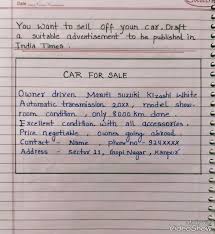 Date
You want to sell off your car. Draft
a suitable advertisement to be published in
India Times.
CAR FOR SALE
Owner driven Maruti Suzuki Kizashi White
Automatic transmission 20xx, model show
room condition, only 8000 km done.
Excellent condition with all accessories.
Price negotiable, owner going abroad.
Contact - Name, phone no - 924xxxx
Address - Sector 21, Gopi Nagar, Kanpur
VideoShow